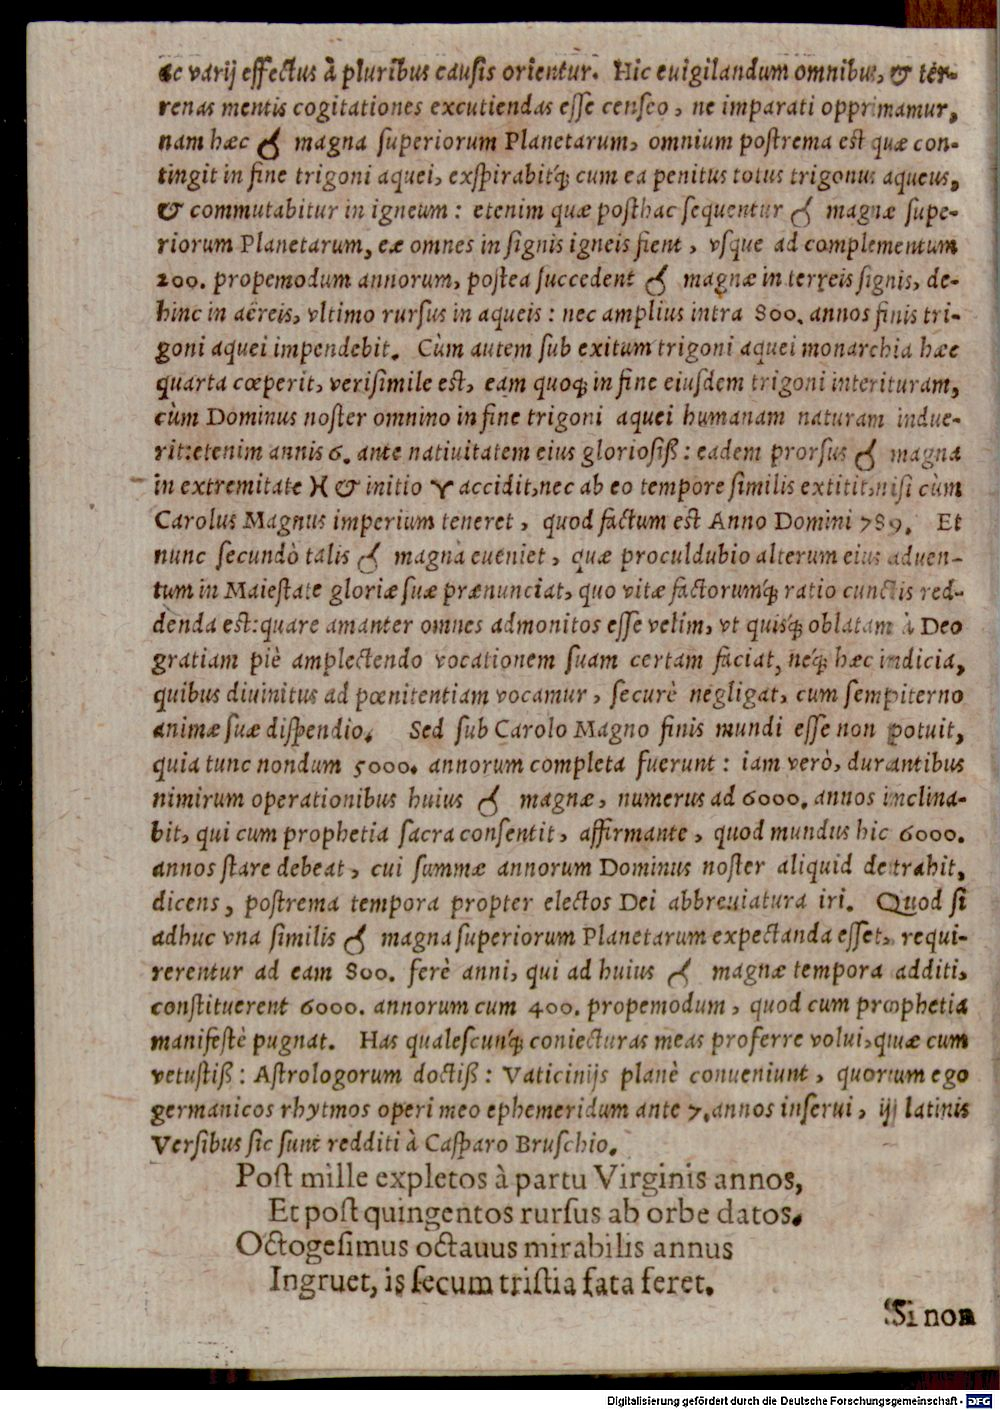 ac varij effectus à pluribus causis orientur. Hic euigilandum omnibus, & ter-
renas mentis cogitationes excutiendas esse censeo, ne imparati opprimamur,
nam hæc ☌ magna superiorum Planetarum, omnium postrema est quæ con-
tingit in fine trigoni aquei, exspirabitq́; cum ea penitus totus trigonus aqueus,
& commutabitur in igneum: etenim quæ posthac sequentur ☌ magnæ supe-
riorum Planetarum, eæ omnes in signis igneis fient, vsque ad complementum
200. propemodum annorum, postea succedent ☌ magnæ in terreis signis, de-
hinc in aëreis, vltimo rursus in aqueis: nec amplius intra 800. annos finis tri-
goni aquei impendebit. Cùm autem sub exitum trigoni aquei monarchia hæc
quarta cœperit, verisimile est, eam quoq; in fine eiusdem trigoni interituram,
cùm Dominus noster omnino in fine trigoni aquei humanam naturam indue-
rit: etenim annis 6. ante natiuitatem eius gloriosiß: eadem prorsus ☌ magna
in extremitate ♓ & initio ♈ accidit, nec ab eo tempore similis extitit, nisi cùm
Carolus Magnus imperium teneret, quod factum est Anno Domini 789. Et
nunc secundò talis ☌ magna eueniet, quæ proculdubio alterum eius aduen-
tum in Maiestate gloriæ suæ prænunciat, quo vitæ factorumq́; ratio cunctis red-
denda est: quare amanter omnes admonitos esse velim, vt quisq́; oblatam à Deo
gratiam piè amplectendo vocationem suam certam faciat, neq́; hæc indicia,
quibus diuinitus ad pœnitentiam vocamur, securè negligat, cum sempiterno
animæ suæ dispendio. Sed sub Carolo Magno finis mundi esse non potuit,
quia tunc nondum 5000. annorum completa fuerunt: iam verò, durantibus
nimirum operationibus huius ☌ magnæ, numerus ad 6000. annos inclina-
bit, qui cum prophetia sacra consentit, affirmante, quod mundus hic 6000.
annos stare debeat, cui summæ annorum Dominus noster aliquid detrahit,
dicens, postrema tempora propter electos Dei abbreuiatura iri. Quod si
adhuc vna similis ☌ magna superiorum Planetarum expectanda esset, requi-
rerentur ad eam 800. ferè anni, qui ad huius ☌ magnæ tempora additi,
constituerent 6000. annorum cum 400. propemodum, quod cum prophetia
manifestè pugnat. Has qualescunq́; coniecturas meas proferre volui, quæ cum
vetustiß: Astrologorum doctiß: Vaticinijs planè conueniunt, quorum ego
germanicos rhytmos operi meo ephemeridum ante 7. annos inserui, ij latinis
Versibus sic sunt redditi à Casparo Bruschio.
Post mille expletos à partu Virginis annos,
Et post quingentos rursus ab orbe datos.
Octogesimus octauus mirabilis annus
Ingruet, is secum tristia fata feret.
Si non
Digitalisierung gefördert durch die Deutsche Forschungsgemeinschaft - DFG